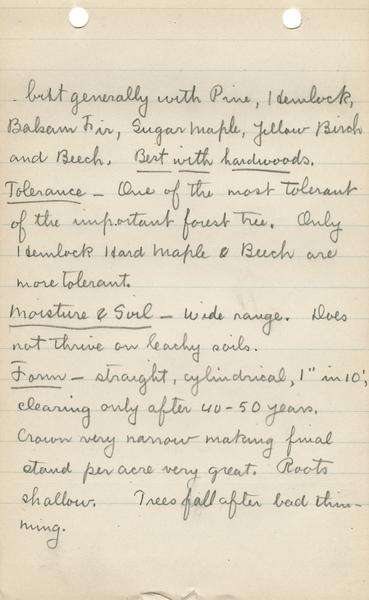 but generally with Pine, Hemlock,
Balsam Fir, Sugar Maple, Yellow Birch
and Beech. Best with hardwoods.
Tolerance - One of the most tolerant
of the important forest tree. Only
Hemlock Hard Maple & Beech are
more tolerant.
Moisture & Soil - Wide range. Does
not thrive on leachy soils.
Form - straight, cylindrical, 1" in 10',
clearing only after 40-50 years.
Crown very narrow making final
stand per acre very great. Roots
shallow. Trees fall after bad thin-
ning.